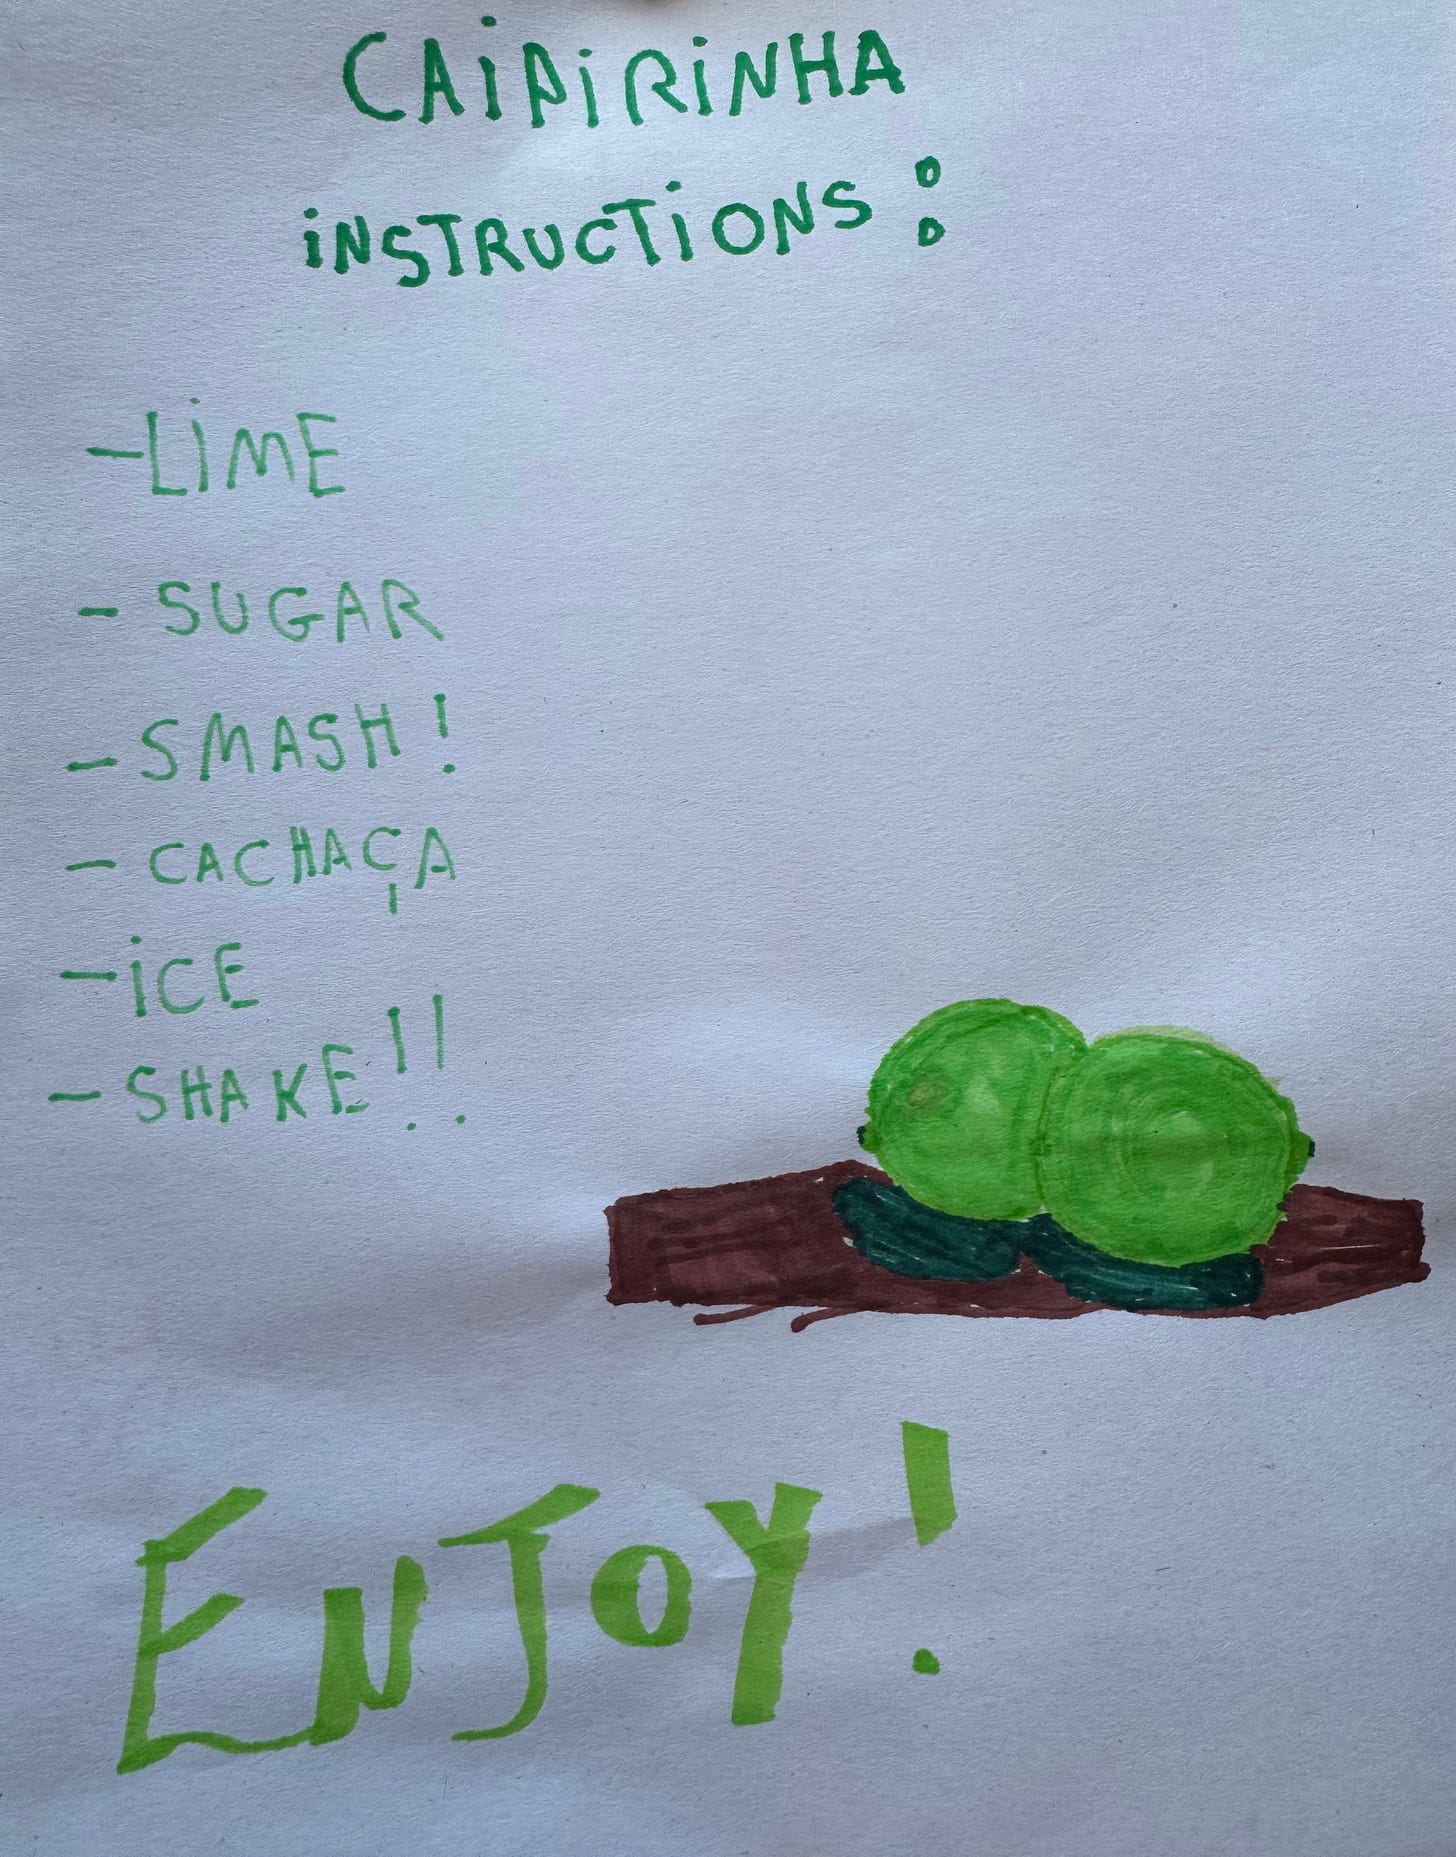 CAiPiRiNHA
iNSTRUCTiONS:
-LiME
- SUGAR
- SMASH!
- CACHAÇA
-iCE
- SHAKE!!
ENJOY!